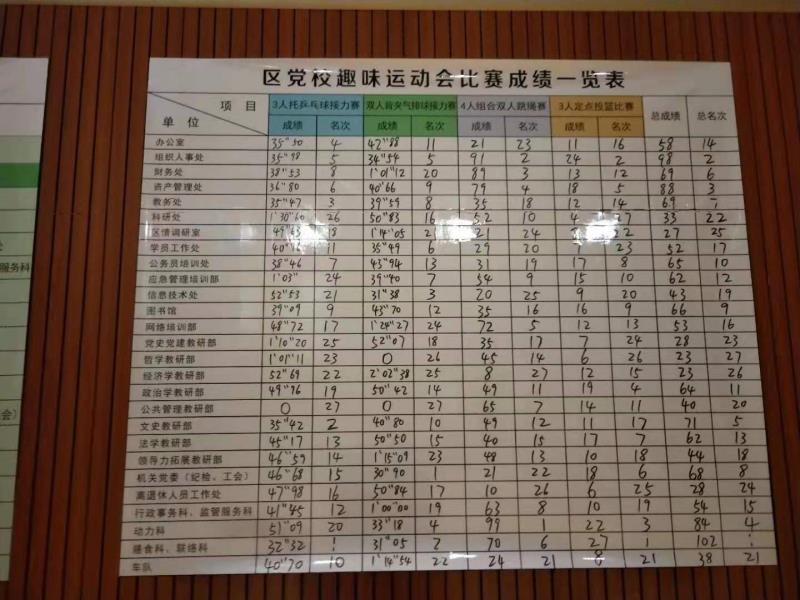 区党校趣味运动会比赛成绩一览表
项目 3人托乒乓球接力赛 双人背夹气排球接力赛 4人组合双人跳绳赛 3人定点投篮比赛 总成绩 总名次
单位 成绩 名次 成绩 名次 成绩 名次 成绩 名次
办公室 35"50 4 42"88 11 21 23 11 16 58 14
组织人事处 35"98 5 34"54 5 91 2 24 2 98 2
财务处 38"53 8 1'01"12 20 89 3 13 12 69 6
资产管理处 36"80 6 40"66 9 79 4 18 5 88 3
教务处 35"47 3 39"59 8 35 18 12 14 69 7
科研处 1'30"60 26 50"83 16 52 10 4 27 33 22
区情调研室 49"63 18 1'14"05 21 21 24 22 27 25
学员工作处 11 35"49 6 29 20 23 52 17
公务员培训处 38"46 7 43"94 13 31 19 17 8 65 10
应急管理培训部 1'03" 24 39"40 7 54 9 15 10 62 12
信息技术处 52"53 21 31"38 3 20 25 9 20 43 19
图书馆 39"09 9 43"70 12 35 16 16 9 66 9
网络培训部 48"72 17 1'24"27 24 72 5 12 13 53 16
党史党建教研部 1'10"20 25 52"07 18 35 17 7 24 28 23
哲学教研部 1'01"11 23 0 26 45 14 6 26 23 27
经济学教研部 52"69 22 2'02"38 25 8 27 12 15 23 26
政治学教研部 49"96 19 50"42 14 49 11 19 4 64 11
公共管理教研部 0 27 0 27 65 7 14 11 40 20
文史教研部 35"42 2 40"80 10 49 12 11 17 71 5
法学教研部 45"17 13 50"50 15 40 15 17 7 62 13
领导力拓展教研部 46"59 14 1'15"09 23 48 13 10 18 44 18
机关党委（纪检、工会） 46"68 15 30"90 1 21 22 18 6 68 8
离退休人员工作处 47"98 16 50"84 17 10 26 6 25 28 24
行政事务科、监管服务科 41"45 12 1'00"00 19 63 8 10 19 54 15
动力科 51"09 20 33"18 4 99 1 22 3 84 4
膳食科、联络科 32"32 1 31"05 2 70 6 27 1 102 1
车队 40"70 10 1'14"54 22 24 21 8 21 38 21